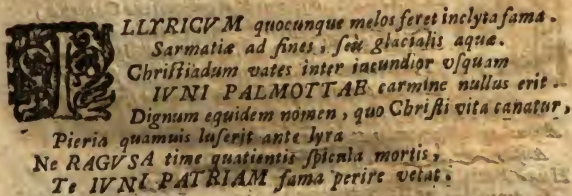 ILLYRICVM quocunque melos feret inclyta fama.
Sarmatiæ ad fines, seù glacialis aquæ.
Christiadum vates inter iucundior vsquam
IVNI PALMOTTAE carmine nullus erit.
Dignum equidem nomen, quo Christi vita canatur,
Pieria quamuis luserit ante lyra
Ne RAGVSA time quatientis spicula mortis,
Te IVNI PATRIAM fama perire vetat.